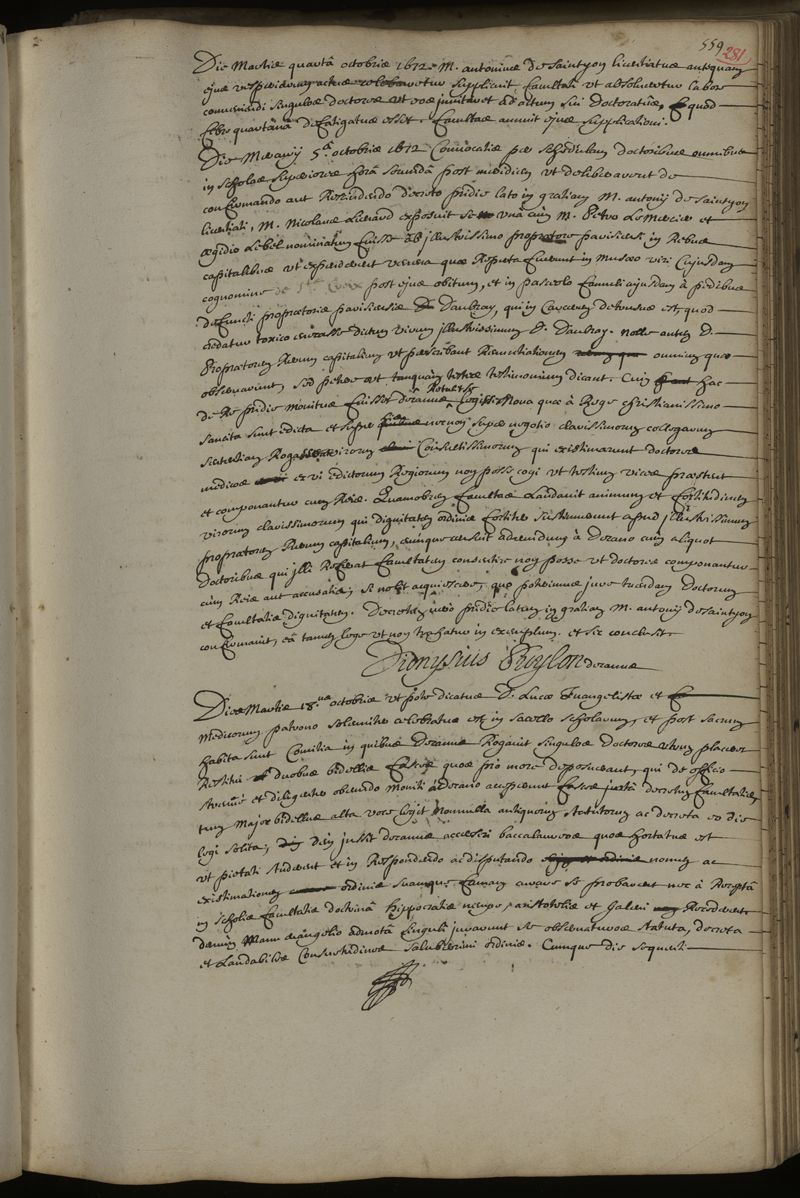 559
281
Die Martis quartâ octobris 1672 M. antonius de Saintyon licentiatus antequam
ejus vesperiarum actus celebraretur supplicuit facultati ut absolveretur labore
conveniendi singulos doctores ut eos invitaret ad actum sui doctoratûs, quod
febre quartanâ defatigatus esset. facultas annuit ejus supplicationi.
Die Mercurij 5.â octobris 1672 Convocatis per schedulam doctoribus omnibus
in scholas superiores horâ secundâ post meridiem ut deliberarent de
confirmando aut rescindendo decreto pridie lato in gratiam M. antonij de Saintyon
licentiati, M. Nicolaus Lienard exposuit se unâ cum M. Petro Le Mercier et
ægidio Lebel nominatum fuisse ab jllustrissimo proprætore parisiensi in Rebus
capitalibus ut expenderent venena quæ reperta fuerunt in musæo viri cujusdam
cognomine de Ste Croix post ejus obitum, et in pascolo famuli cujusdam à pedibus
defuncti proprætoris parisiensis Daubray, qui in carcerem detrusus est, quod
credatur toxico necasse dictum virum jllustrissimum D. Daubray. nolle autem D.
Proprætorem Rerum capitalium ut perscribant renuntiationem omnium quæ
observarunt, sed petere ut tanquam testes testimonium dicant. Cum hac
de re pridie monitus fuisset decanus Retulisse legisse nova quæ à Rege christianissimo
sancita sunt edicta et super hoc necnon supra negotio clarissimorum collegarum
sententiam rogasse virorum Consultissimorum qui existimarunt doctores
medicos ex vi edictorum Regiorum non posse cogi ut testium vices præstent
et componantur cum Reis. Quamobrem facultas laudavit animum et fortitudinem
virorum clarissimorum qui dignitatem ordinis fortiter sustinuerunt apud jllustrissimum
proprætorem Rerum capitalium, eumque censuit adeundum à decano cum aliquot
doctoribus qui jlli referat facultatem consentire non posse ut doctores componantur
cum Reis aut accusatis; si nolit acquiescere, quo poterimus jure tuendam doctorum
et facultatis dignitatem. Decretum vero pridie latum in gratiam M. antonij de Saintyon
confirmavit, eâ tamen lege ut non trahatur in exemplum. et sic conclusit.
Dionysius Puylon decanus
Die Martis 18.va octobris ut pote dicatus D. Lucæ Evangelistæ et
Medicorum patrono solemniter celebratus est in sacello scholarum, et post sacrum
habita sunt Comitia in quibus decanus rogavit singulos doctores utrum placeret
restitui duobus bidellis fasces quos pro more deposuerant, qui de officio
strenuè et diligenter obeundo moniti à decano acceperunt fasces juxtâ decretum facultatis,
tum major bidellus alta voce legit nonnulla antiquorum statutorum ac decreta eo die
legi solita; dein jussit decanus accersiri baccalaureos quos hortatus est
ut pietati studerent et in respondendo ac disputando nomen ac
existimationem ordinis suamque famam curare se probarent nec à receptâ
in scholis facultatis doctrinâ hippocratis nempe, aristotelis et Galeni recederent.
demum manu evangelio admotâ singuli jurarunt se observaturos statuta, decreta
et laudabiles consuetudines saluberrimi ordinis. Cumque die sequenti